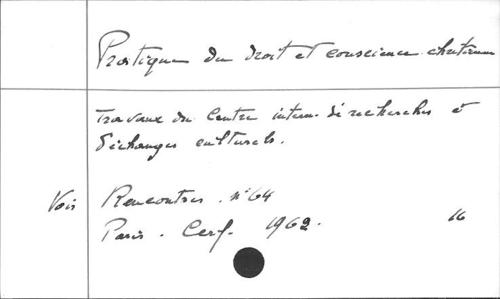 Pratique du droit et conscience chrétienne
Travaux du Centre intern. de recherches et
d'échanges culturels.
Voir Rencontres. n° 64
Paris. Cerf. 1962. 16